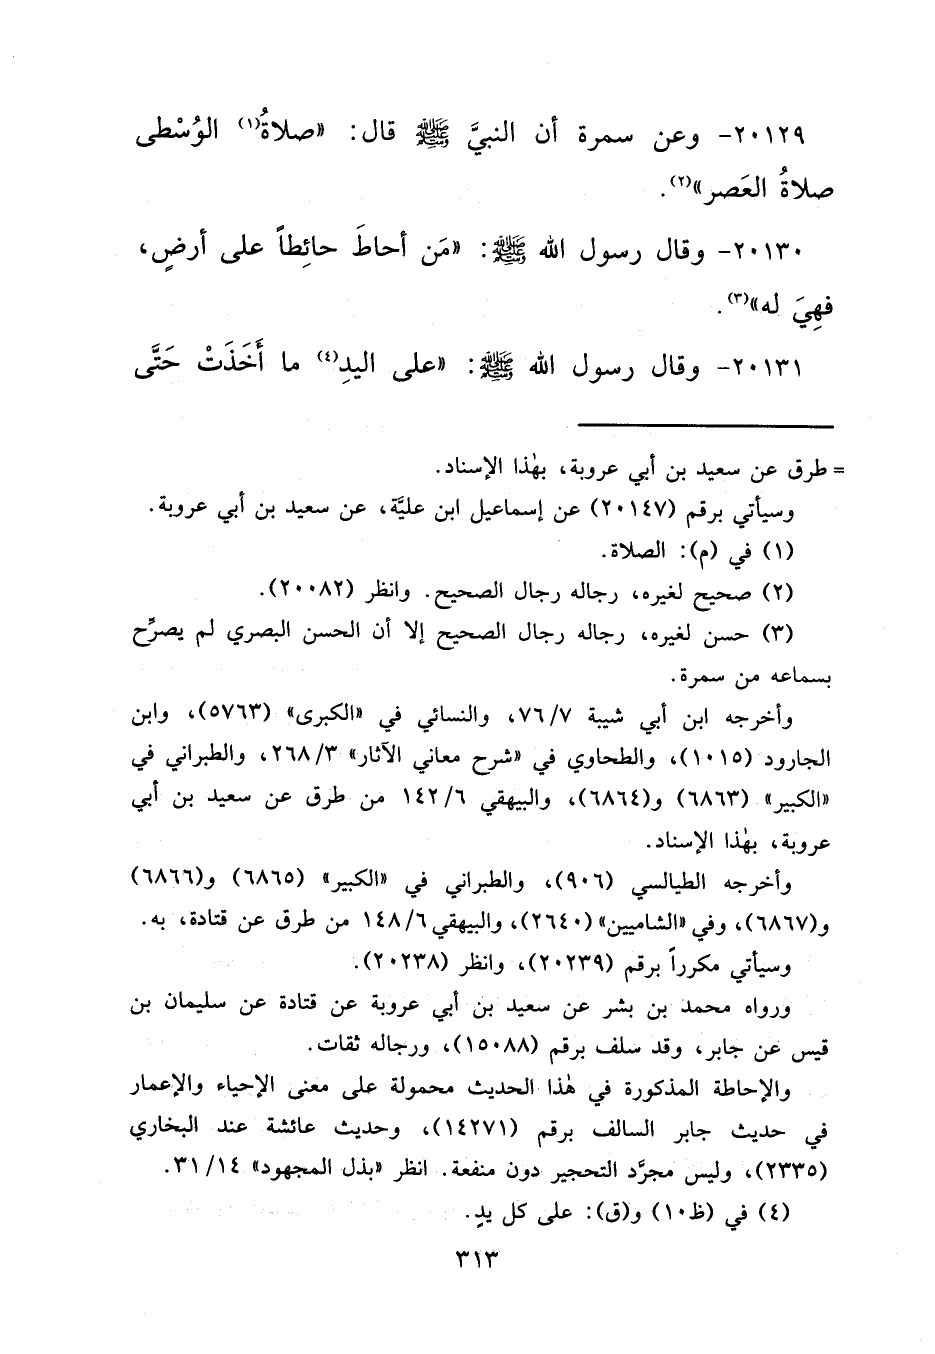 ٢٠١٢٩- وعن سمرة أن النبيَّ ﷺ قال: «صلاةُ(١) الوُسْطى
صلاةُ العَصر»(٢).
٢٠١٣٠- وقال رسول الله ﷺ: «مَن أحاطَ حائِطاً على أرضٍ،
فهِيَ له»(٣).
٢٠١٣١- وقال رسول الله ﷺ: «على اليدِ(٤) ما أَخَذَتْ حَتَّى
= طرق عن سعيد بن أبي عروبة، بهٰذا الإسناد.
وسيأتي برقم (٢٠١٤٧) عن إسماعيل ابن عليَّة، عن سعيد بن أبي عروبة.
(١) في (م): الصلاة.
(٢) صحيح لغيره، رجاله رجال الصحيح. وانظر (٢٠٠٨٢).
(٣) حسن لغيره، رجاله رجال الصحيح إلا أن الحسن البصري لم يصرِّح
بسماعه من سمرة.
وأخرجه ابن أبي شيبة ٧٦/٧، والنسائي في «الكبرى» (٥٧٦٣)، وابن
الجارود (١٠١٥)، والطحاوي في «شرح معاني الآثار» ٢٦٨/٣، والطبراني في
«الكبير» (٦٨٦٣) و(٦٨٦٤)، والبيهقي ١٤٢/٦ من طرق عن سعيد بن أبي
عروبة، بهٰذا الإسناد.
وأخرجه الطيالسي (٩٠٦)، والطبراني في «الكبير» (٦٨٦٥) و(٦٨٦٦)
و(٦٨٦٧)، وفي «الشاميين» (٢٦٤٠)، والبيهقي ١٤٨/٦ من طرق عن قتادة، به.
وسيأتي مكرراً برقم (٢٠٢٣٩)، وانظر (٢٠٢٣٨).
ورواه محمد بن بشر عن سعيد بن أبي عروبة عن قتادة عن سليمان بن
قيس عن جابر، وقد سلف برقم (١٥٠٨٨)، ورجاله ثقات.
والإحاطة المذكورة في هٰذا الحديث محمولة على معنى الإحياء والإعمار
في حديث جابر السالف برقم (١٤٢٧١)، وحديث عائشة عند البخاري
(٢٣٣٥)، وليس مجرَّد التحجير دون منفعة. انظر «بذل المجهود» ٣١/١٤.
(٤) في (ظ١٠) و(ق): على كل يدٍ.
٣١٣